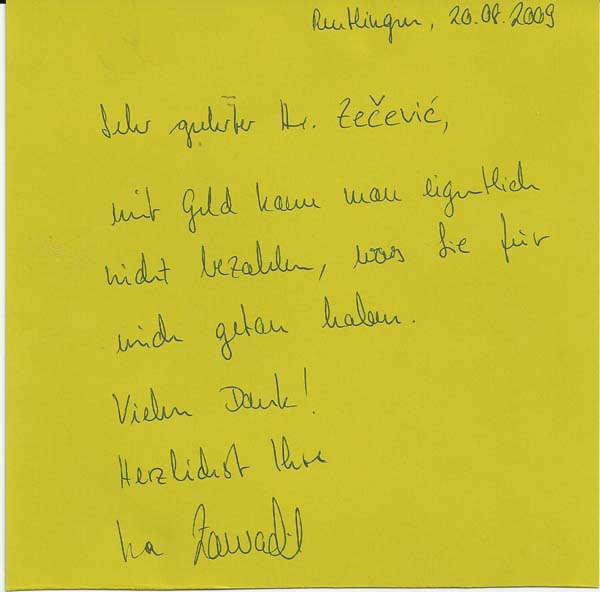 Reutlingen, 20.08.2009
Sehr geehrter Hr. Zečević,
mit Geld kann man eigentlich
nicht bezahlen, was Sie für
mich getan haben.
Vielen Dank!
Herzlichst Ihre
Zawadil